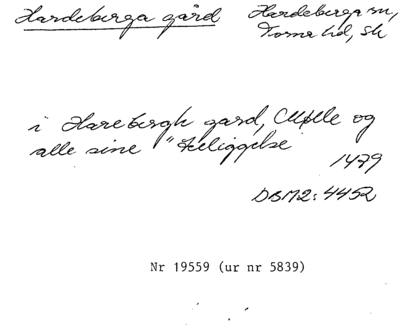 Hardeberga gård Hardeberga sn,
Torna hd, Sk
i Harebergh gard, Mølle og
alle sine "tteliggelse
1479
DBM2: 4452
Nr 19559 (ur nr 5839)